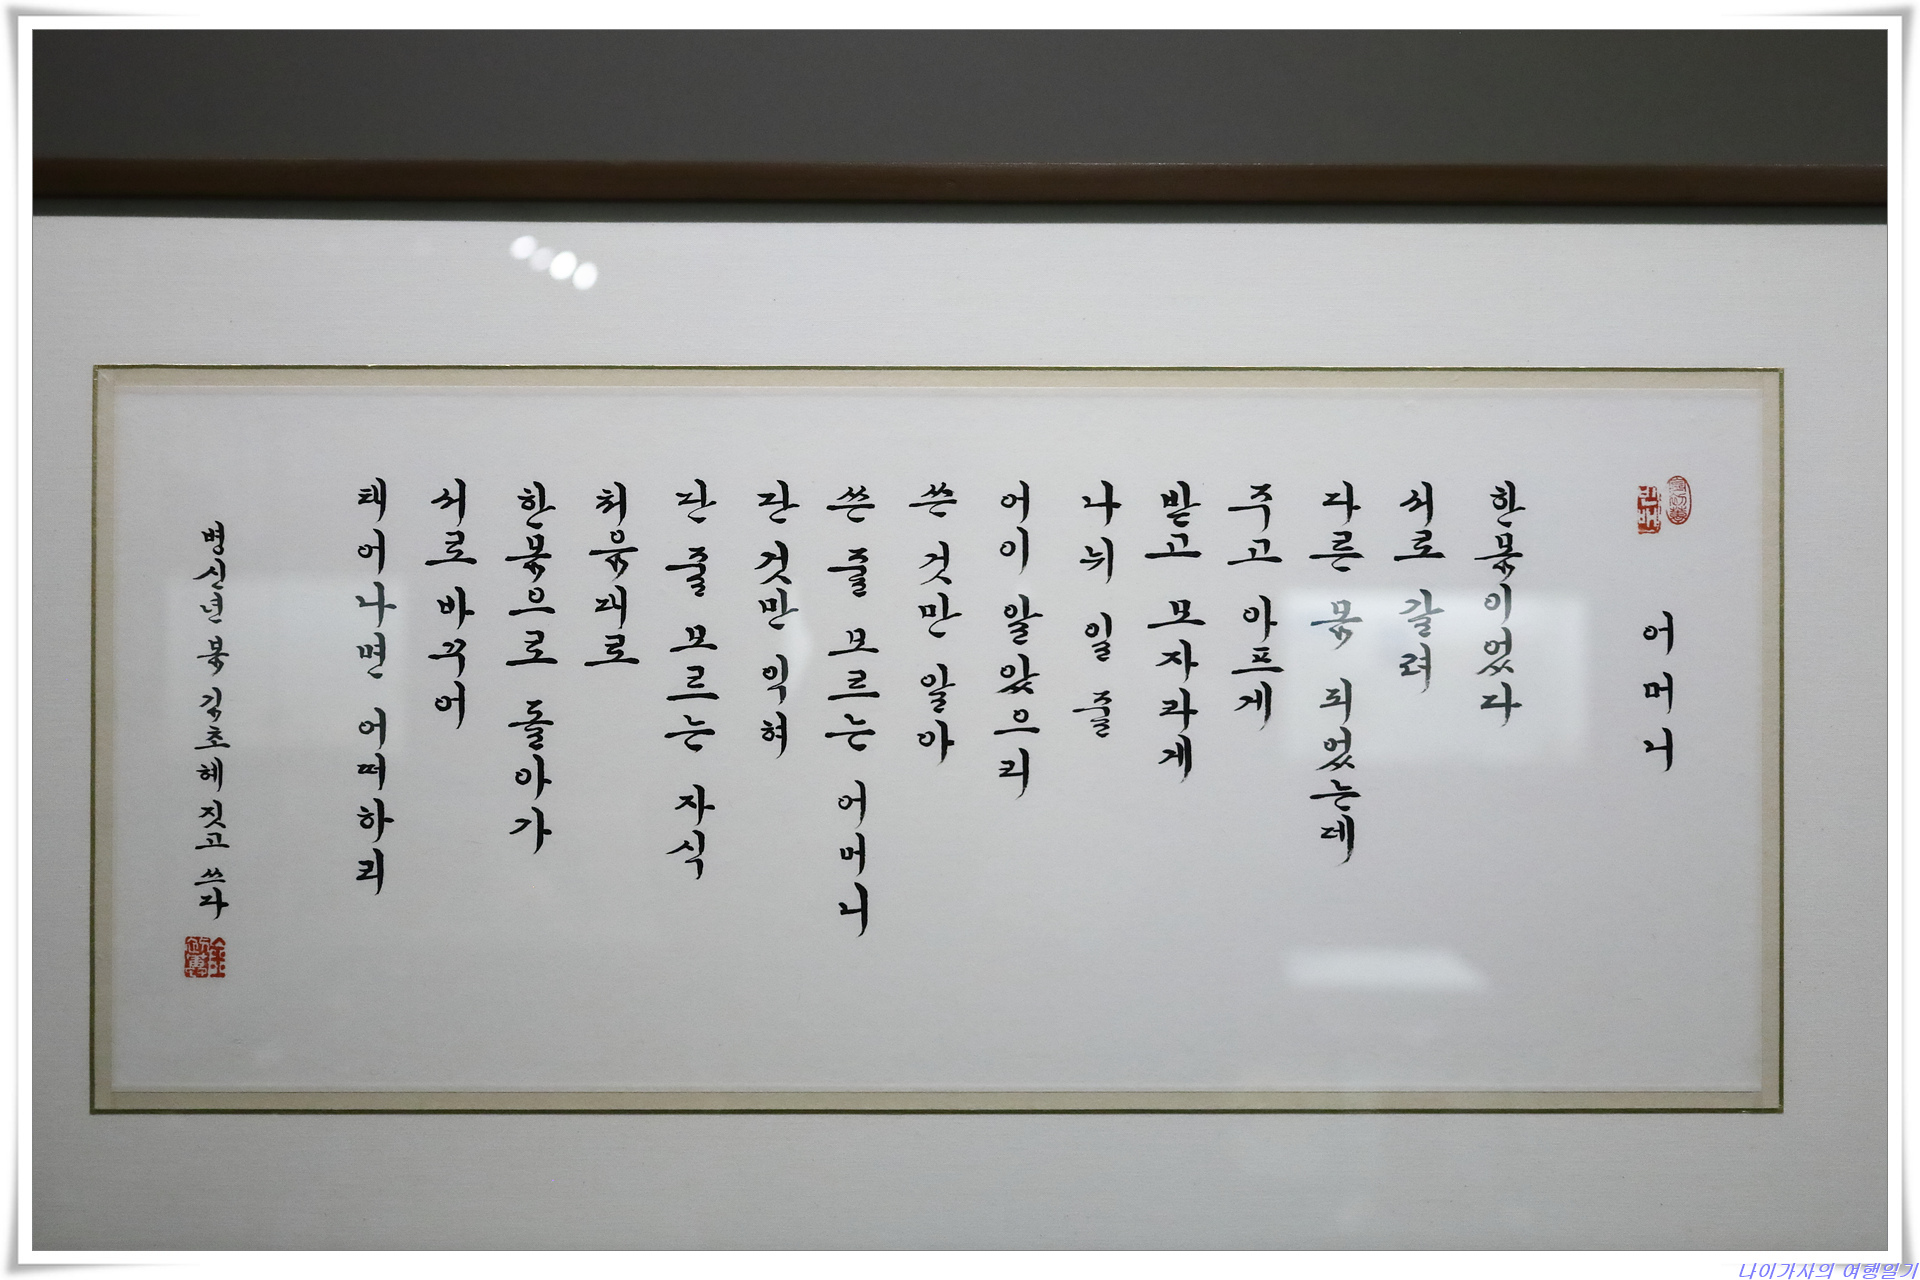 어머니
한몸이었다
서로 갈려
다른 몸 되었는데
주고 아프게
받고 모자라게
나뉘일 줄
어이 알았으리
쓴 것만 알아
쓴 줄 모르는 어머니
단 것만 익혀
단 줄 모르는 자식
처음대로
한몸으로 돌아가
서로 바꾸어
태어나면 어떠하리
병신년 봄 김초혜 짓고 쓰다
나이가사의 여행일기